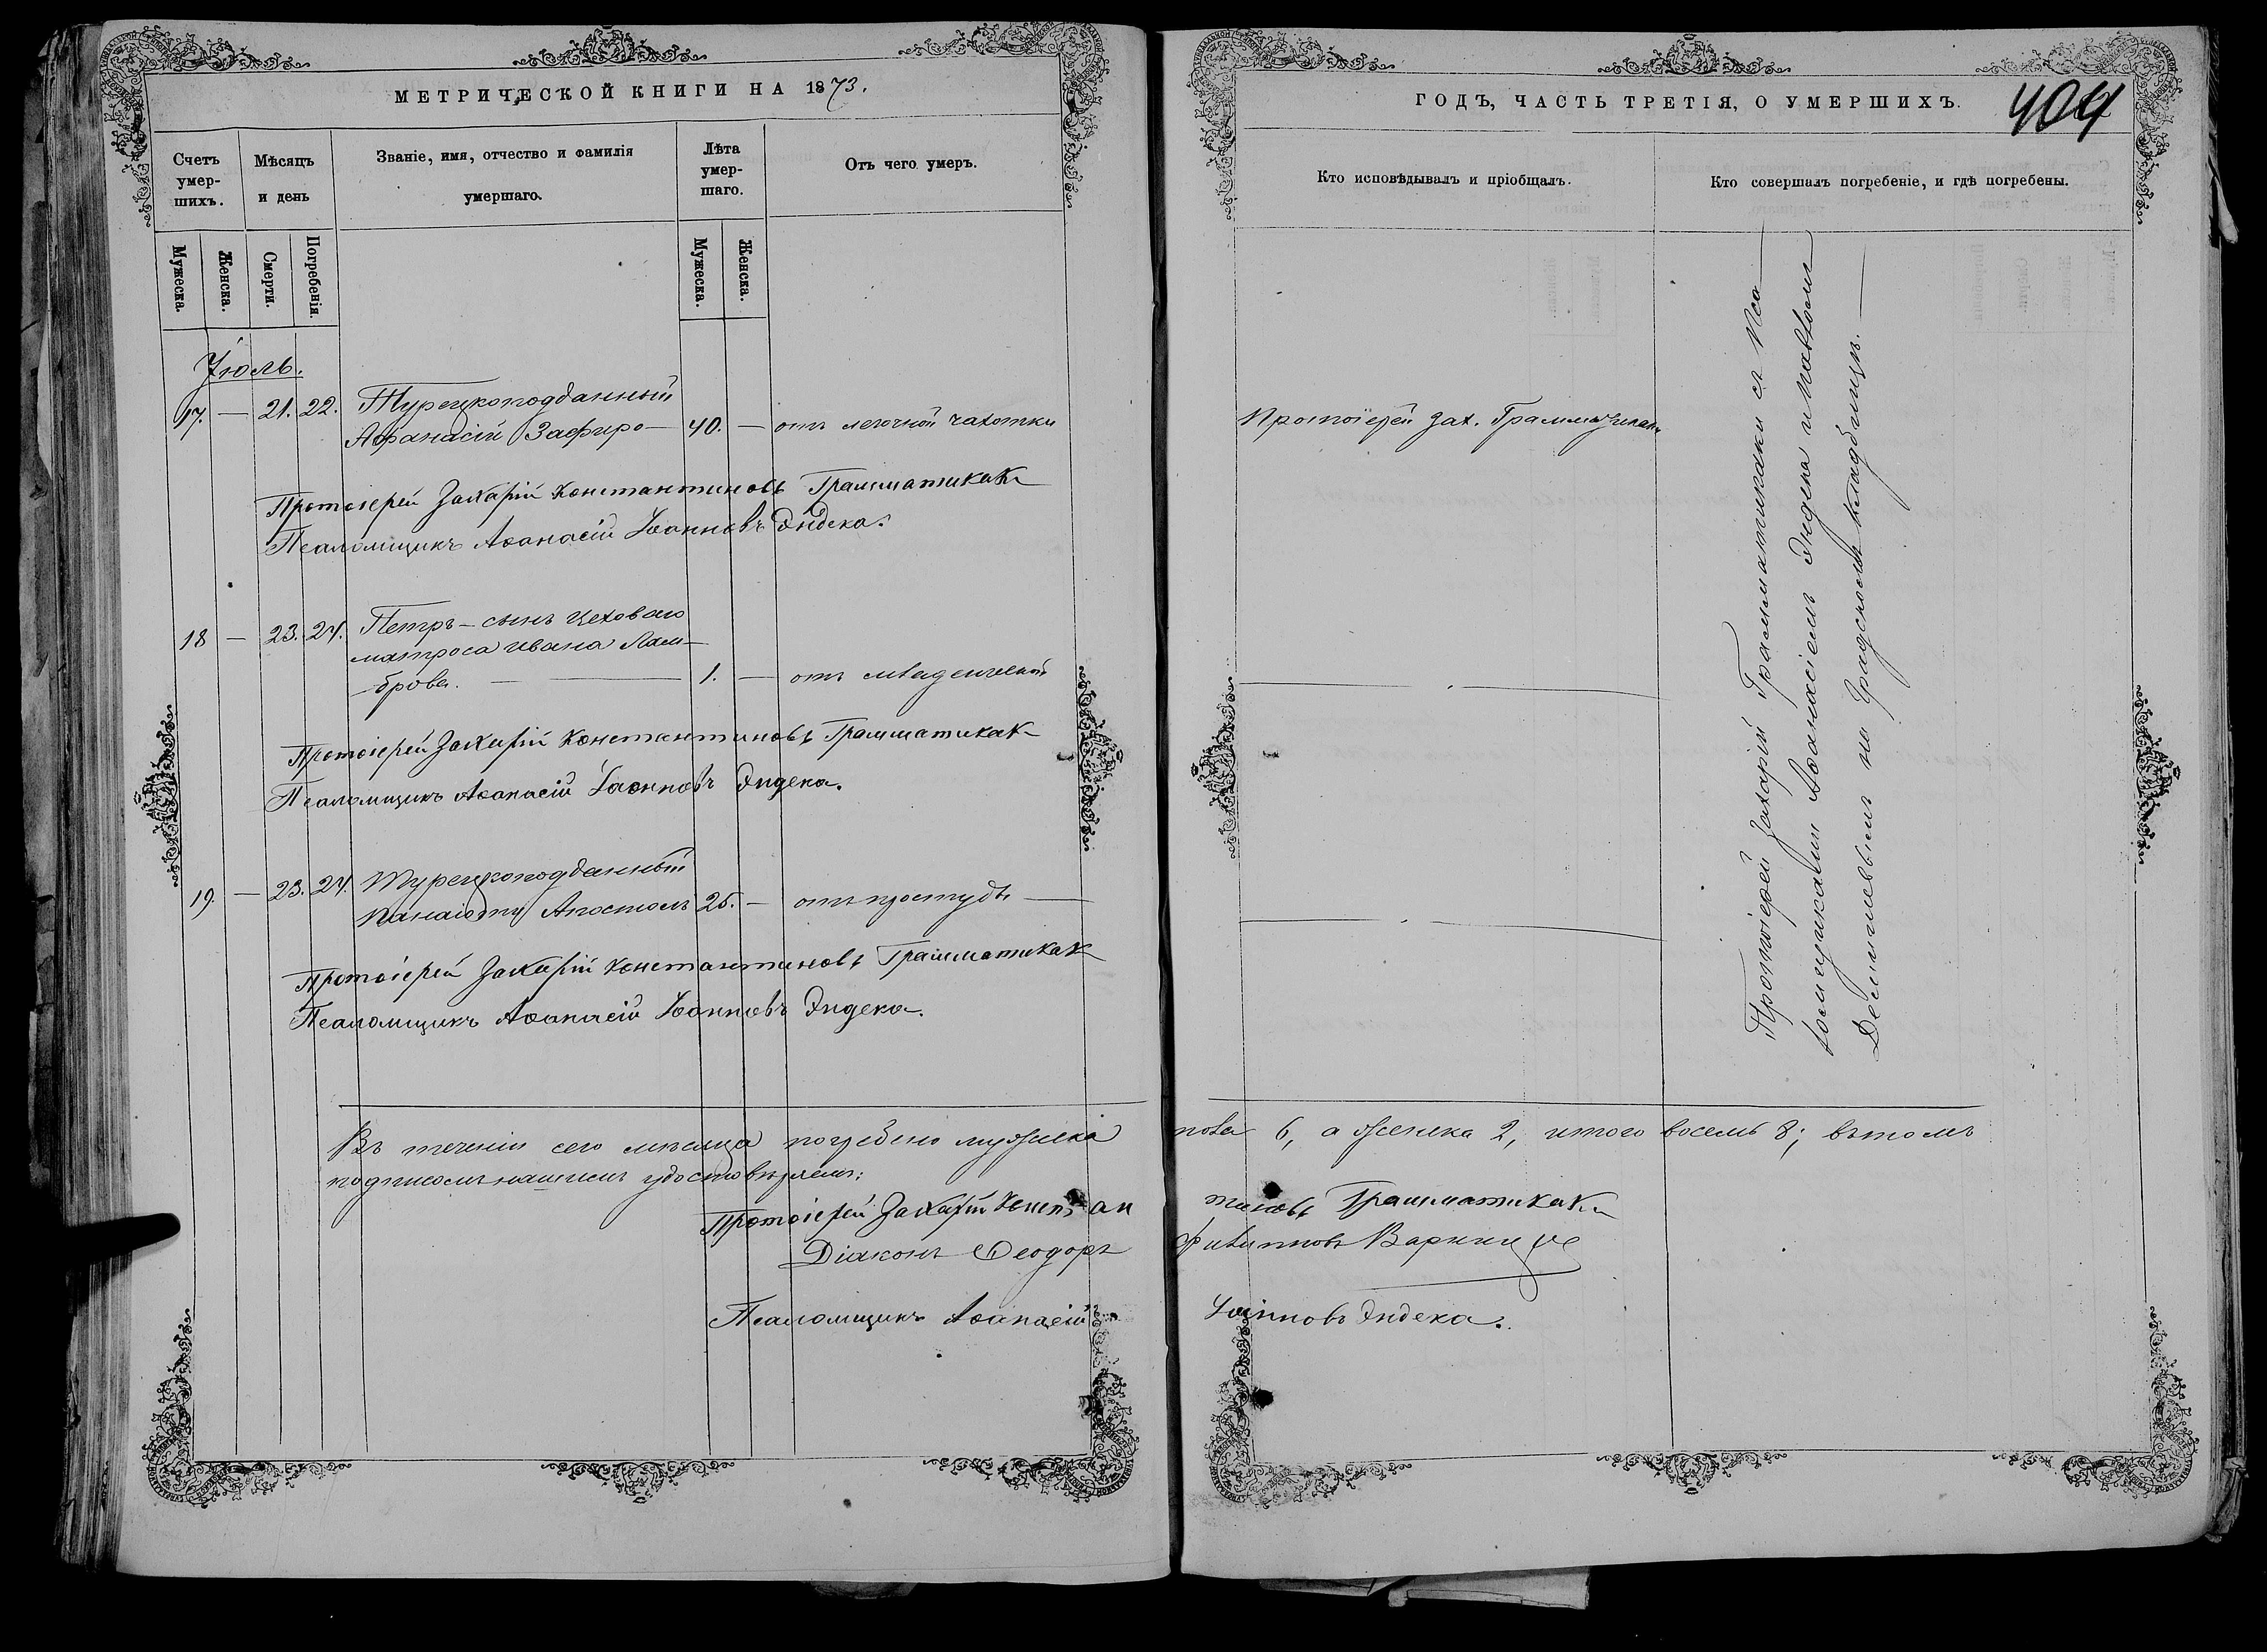 МЕТРИЧЕСКОЙ КНИГИ НА 1873.
Счетъ умер-шихъ.
Мѣсяцъ и день
Званіе, имя, отчество и фамилія умершаго.
Лѣта умер-шаго.
Отъ чего умеръ.
Мужеска.
Женска.
Смерти.
Погребенія.
Мужеска.
Женска.
Іюль.
17. — 21. 22. Турецкоподданный
Афанасій Зафиро — 40. — отъ легочной чахотки
Протоіерей Захарій Константиновъ Грамматикаки
Псаломщикъ Аѳанасій Іоанновъ Эндека.
18 — 23. 24. Петръ — сынъ цеховаго
матроса Ивана Лам-
брова. — 1. — отъ младенческой
Протоіерей Захарій Константиновъ Грамматикаки
Псаломщикъ Аѳанасій Іоанновъ Эндека.
19. — 23. 24. Турецкоподданный
Панаіоти Апостолъ 25. — отъ простуды —
Протоіерей Захарій Константиновъ Грамматикаки
Псаломщикъ Аѳанасій Іоанновъ Эндека.
Въ теченіи сего мѣсяца погребено мужеска
подписомъ нашимъ удостовѣряемъ:
Протоіерей Захарій Констан
Діаконъ Ѳеодоръ
Псаломщикъ Аѳанасій
ГОДЪ, ЧАСТЬ ТРЕТІЯ, О УМЕРШИХЪ.
404
Кто исповѣдывалъ и пріобщалъ.
Кто совершалъ погребеніе, и гдѣ погребены.
Протоіерей Зах. Грамматикаки
Протоіерей Захарій Грамматикаки съ Пса-
ломщиками Аѳанасіемъ Эндека и
на Градскомъ кладбищѣ. —
пола 6, а женска 2, итого восемь 8; въ томъ
тиновъ Грамматикаки
Филипповъ
Іоанновъ Эндека.